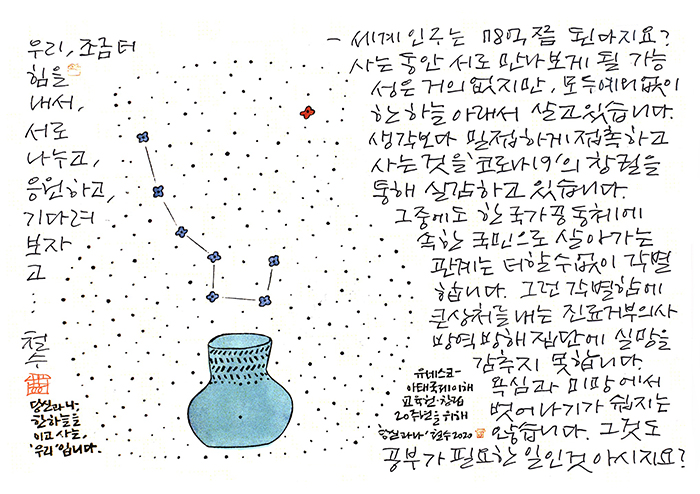 우리, 조금 더
힘을
내서,
서로
나누고,
응원하고,
기다려
보자
고...
철수
당신과 나,
한 하늘을
이고 사는,
'우리'입니다.
- 세계 인구는 78억쯤 된다지요?
사는 동안 서로 만나보게 될 가능
성은 거의 없지만, 모두 예외없이
한 하늘 아래서 살고 있습니다.
생각보다 밀접하게 접촉하고
사는 것을 '코로나19'의 창궐을
통해 실감하고 있습니다.
그중에도 한 국가공동체에
속한 국민으로 살아가는
관계는 더할 수 없이 각별
합니다. 그런 각별함에
큰 상처를 내는 진료거부의사
방역방해 집단에 실망을
감추지 못합니다.
욕심과 미망에서
벗어나기가 쉽지는
않습니다. 그것도
공부가 필요한 일인 것 아시지요?
유네스코-
아태국제이해
교육원·창립
20주년을 위해
'당신과 나' 철수 2020